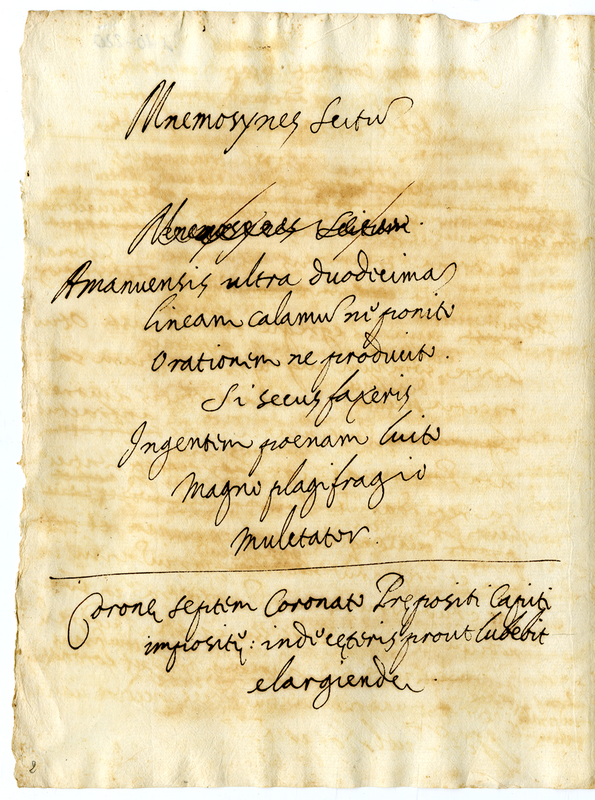 Mnemosynes Scitu
Mnemosynes Scitum.
Amanuensis ultra duodecima
lineam calamu ne ponito
Orationem ne producito.
Si secus faxeris
Ingentem poenam luito
Magno plagifragio
mulctator.
Coronę septem Coronato Prępositi Capiti
impositę: inde cęteris prout lubebit
elargiendę.
2